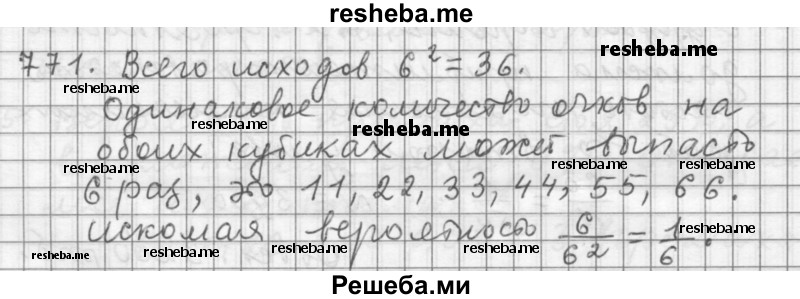 resheba.me
771. Всего исходов 6² = 36. resheba.me
resheba.me
Одинаковое количество очков на
resheba.me resheba.me
обоих кубиках может выпасть
resheba.me resheba.me resheba.me
6 раз, это 11, 22, 33, 44, 55, 66.
искомая вероятность 6/6² = 1/6. resheba.me
resheba.me resheba.me resheba.me resheba.me
Решеба.ми